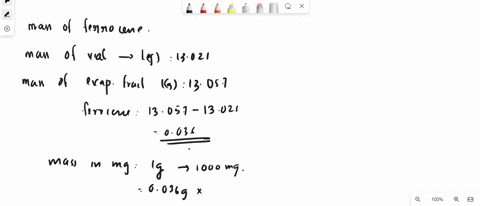 mass of ferrocene.
mass of vial → (g) : 13.021
mass of evap. frail (G) : 13.057
ferrocene : 13.057 - 13.021
= 0.036
mass in mg : 1g → 1000 mg.
= 0.036g ×
100%